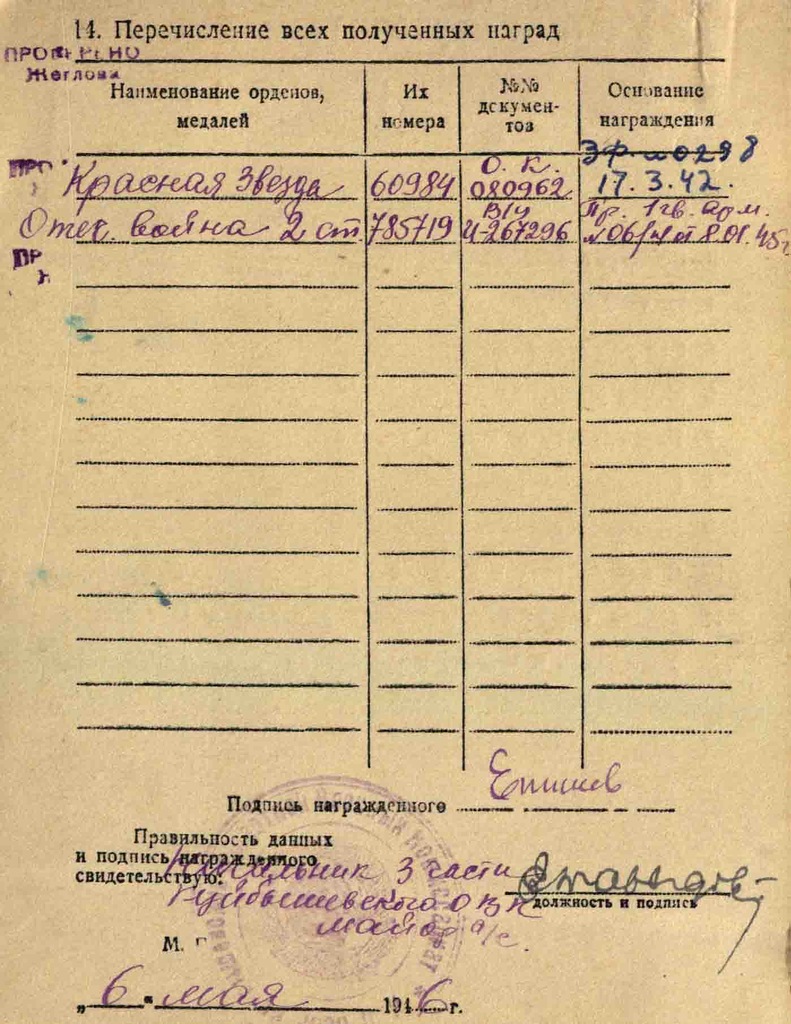 14. Перечисление всех полученных наград
ПРОВЕРЕНО
Жеглова
Наименование орденов, медалей
Их номера
№№ документов
Основание награждения
Красная Звезда 60984 О. К. 080962 17. 3. 42.
Отеч. война 2 ст. 785719 В/ч И-267296 Пр. 1 гв. арм. №06/н от 8.01.45г
ПРО
ПР
Подпись награжденного Епишев
Правильность данных
и подпись награжденного
свидетельствую: Начальник 3 части
Куйбышевского ОВК
майор а/с.
должность и подпись
М.
„6" мая 1946 г.